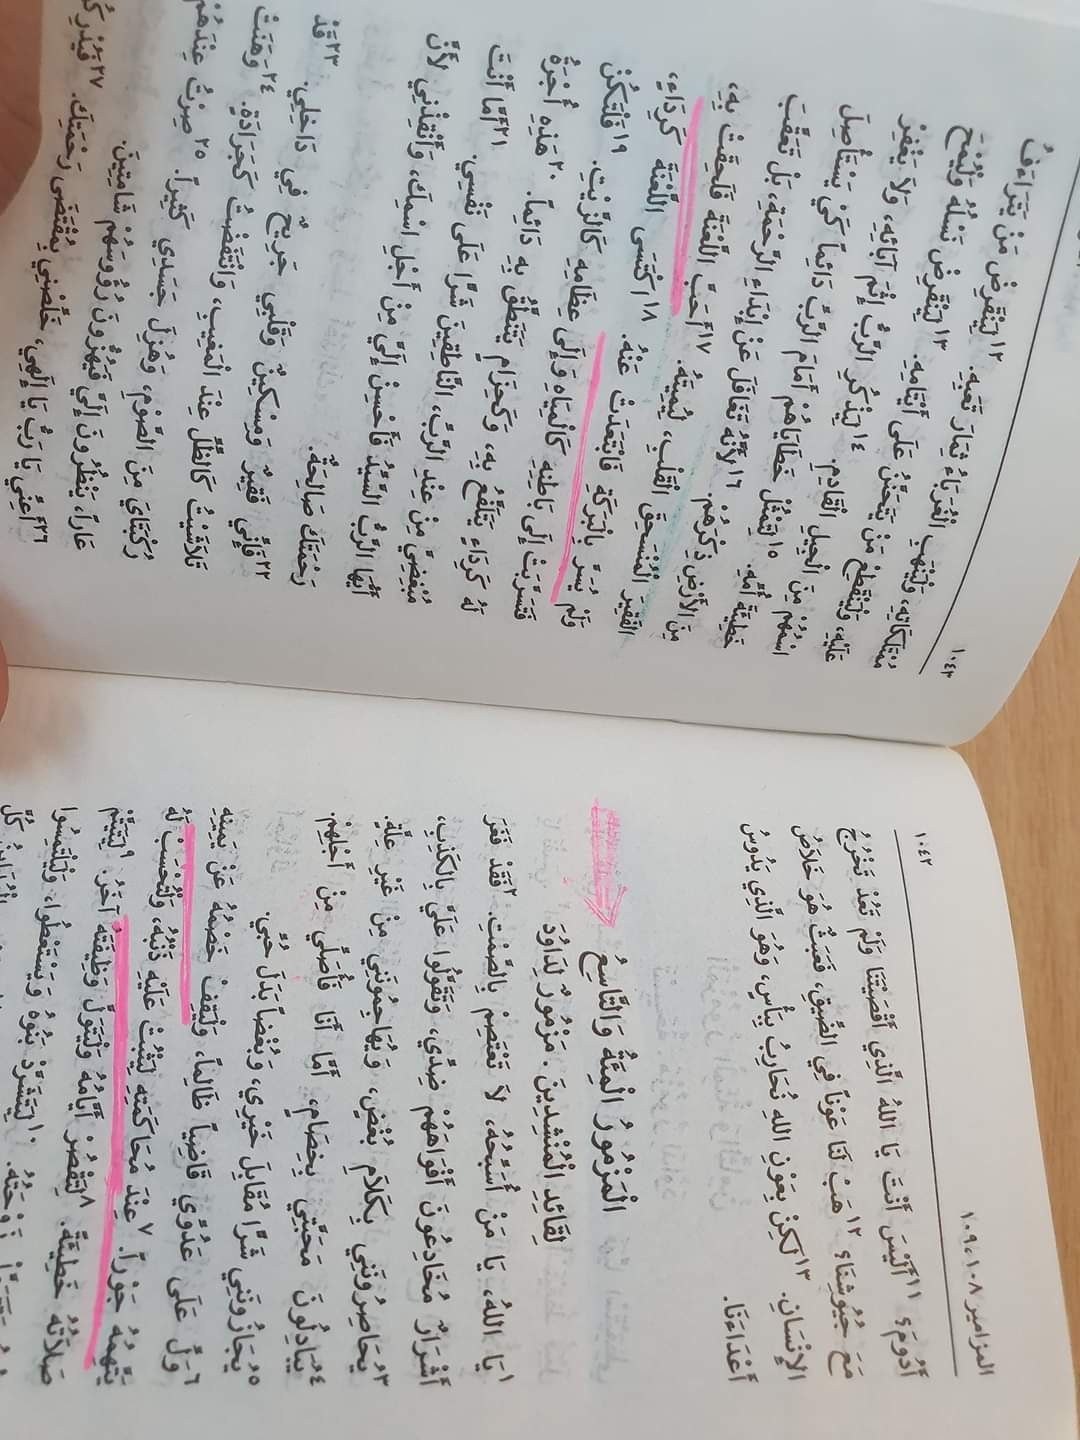 المزامير ١٠٨، ١٠٩ ١٠٤٢
أَدُومَ؟ ١١أَلَيْسَ أَنْتَ يَا اللهُ الَّذِي أَقْصَيْتَنَا وَلَمْ تَعُدْ تَخْرُجُ
مَعَ جُيُوشِنَا؟ ١٢هَبْ لَنَا عَوْناً فِي الضِّيقِ، فَعَبَثٌ هُوَ خَلاَصُ
الإِنْسَانِ. ١٣لَكِنْ بِعَوْنِ اللهِ نُحَارِبُ بِبَأْسٍ، وَهُوَ الَّذِي يَدُوسُ
أَعْدَاءَنَا.
الْمَزْمُورُ الْمِئَةُ وَالتَّاسِعُ
لِقَائِدِ الْمُنْشِدِينَ. مَزْمُورٌ لِدَاوُدَ
١يَا اللهُ، يَا مَنْ أُسَبِّحُهُ، لاَ تَعْتَصِمْ بِالصَّمْتِ. ٢فَقَدْ فَغَرَ
أَشْرَارٌ مُخَادِعُونَ أَفْوَاهَهُمْ ضِدِّي، وَتَقَوَّلُوا عَلَيَّ بِالْكَذِبِ،
٣يُحَاصِرُونَنِي بِكَلاَمِ بُغْضٍ، وَيُهَاجِمُونَنِي مِنْ غَيْرِ عِلَّةٍ.
٤يُبَادِلُونَ مَحَبَّتِي بِخِصَامٍ، أَمَّا أَنَا فَأُصَلِّي مِنْ أَجْلِهِمْ.
٥يُجَازُونَنِي شَرّاً مُقَابِلَ خَيْرِي، وَبُغْضاً بَدَلَ حُبِّي.
٦وَلِّ عَلَى عَدُوِّي قَاضِياً ظَالِماً، وَلْيَقِفْ خَصْمُهُ عَنْ يَمِينِهِ
يَتَّهِمُهُ جَوْراً. ٧عِنْدَ مُحَاكَمَتِهِ لِيَثْبُتْ عَلَيْهِ ذَنْبُهُ، وَلْتُحْسَبْ لَهُ
صَلاَتُهُ خَطِيئَةً. ٨لِتَقْصُرْ أَيَّامُهُ وَلْيَتَوَلَّ وَظِيفَتَهُ آخَرُ. ٩لِيَتَيَتَّمْ
زَوْجَتُهُ. ١٠لِيَتَشَرَّدْ بَنُوهُ وَيَسْتَعْطُوا، وَلْيَلْتَمِسُوا
١٠٤٣
١٢لِيَنْقَرِضْ مَنْ يَتَرَاءَفُ
مُمْتَلَكَاتِهِ، وَلْيَنْهَبِ الْغُرَبَاءُ ثِمَارَ تَعَبِهِ.
عَلَيْهِ، وَلْيَنْقَطِعْ مَنْ يَتَحَنَّنُ عَلَى أَيْتَامِهِ. ١٣لِيَنْقَرِضْ نَسْلُهُ وَلْيُمْحَ
اسْمُهُمْ مِنَ الْجِيلِ الْقَادِمِ. ١٤لِيَذْكُرِ الرَّبُّ إِثْمَ آبَائِهِ، وَلاَ يَغْفِرْ
خَطِيئَةَ أُمِّهِ. ١٥لِتَمْثُلْ خَطَايَاهُمْ أَمَامَ الرَّبِّ دَائِماً كَيْ يَسْتَأْصِلَ
مِنَ الأَرْضِ ذِكْرَهُمْ. ١٦لأَنَّهُ تَغَافَلَ عَنْ إِبْدَاءِ الرَّحْمَةِ، بَلْ تَعَقَّبَ
الْفَقِيرَ الْمُنْسَحِقَ الْقَلْبِ، لِيُمِيتَهُ. ١٧أَحَبَّ اللَّعْنَةَ فَلَحِقَتْ بِهِ،
وَلَمْ يُسَرَّ بِالْبَرَكَةِ فَابْتَعَدَتْ عَنْهُ. ١٨اكْتَسَى اللَّعْنَةَ كَرِدَاءٍ،
فَتَسَرَّبَتْ إِلَى بَاطِنِهِ كَالْمِيَاهِ وَإِلَى عِظَامِهِ كَالزَّيْتِ. ١٩فَلْتَكُنْ
لَهُ كَرِدَاءٍ يَتَلَفَّعُ بِهِ، وَكَحِزَامٍ يَتَنَطَّقُ بِهِ دَائِماً. ٢٠هَذِهِ أُجْرَةُ
مُبْغِضِيَّ مِنْ عِنْدِ الرَّبِّ، النَّاطِقِينَ شَرّاً عَلَى نَفْسِي. ٢١أَمَّا أَنْتَ
أَيُّهَا الرَّبُّ السَّيِّدُ فَأَحْسِنْ إِلَيَّ مِنْ أَجْلِ اسْمِكَ، وَأَنْقِذْنِي لأَنَّ
رَحْمَتَكَ صَالِحَةٌ.
٢٢فَإِنِّي فَقِيرٌ وَمِسْكِينٌ وَقَلْبِي جَرِيحٌ فِي دَاخِلِي. ٢٣قَدْ
تَلاَشَيْتُ كَالظِّلِّ عِنْدَ الْمَغِيبِ، وَانْتَفَضْتُ كَجَرَادَةٍ. ٢٤وَهَنَتْ
رُكْبَتَايَ مِنَ الصَّوْمِ، وَهُزِلَ جَسَدِي كَثِيراً. ٢٥صِرْتُ عِنْدَهُمْ
عَاراً، يَنْظُرُونَ إِلَيَّ فَيَهُزُّونَ رُؤُوسَهُمْ شَامِتِينَ.
٢٦أَعِنِّي يَا رَبُّ يَا إِلَهِي، خَلِّصْنِي بِمُقْتَضَى رَحْمَتِكَ. ٢٧فَيُدْرِكُوا